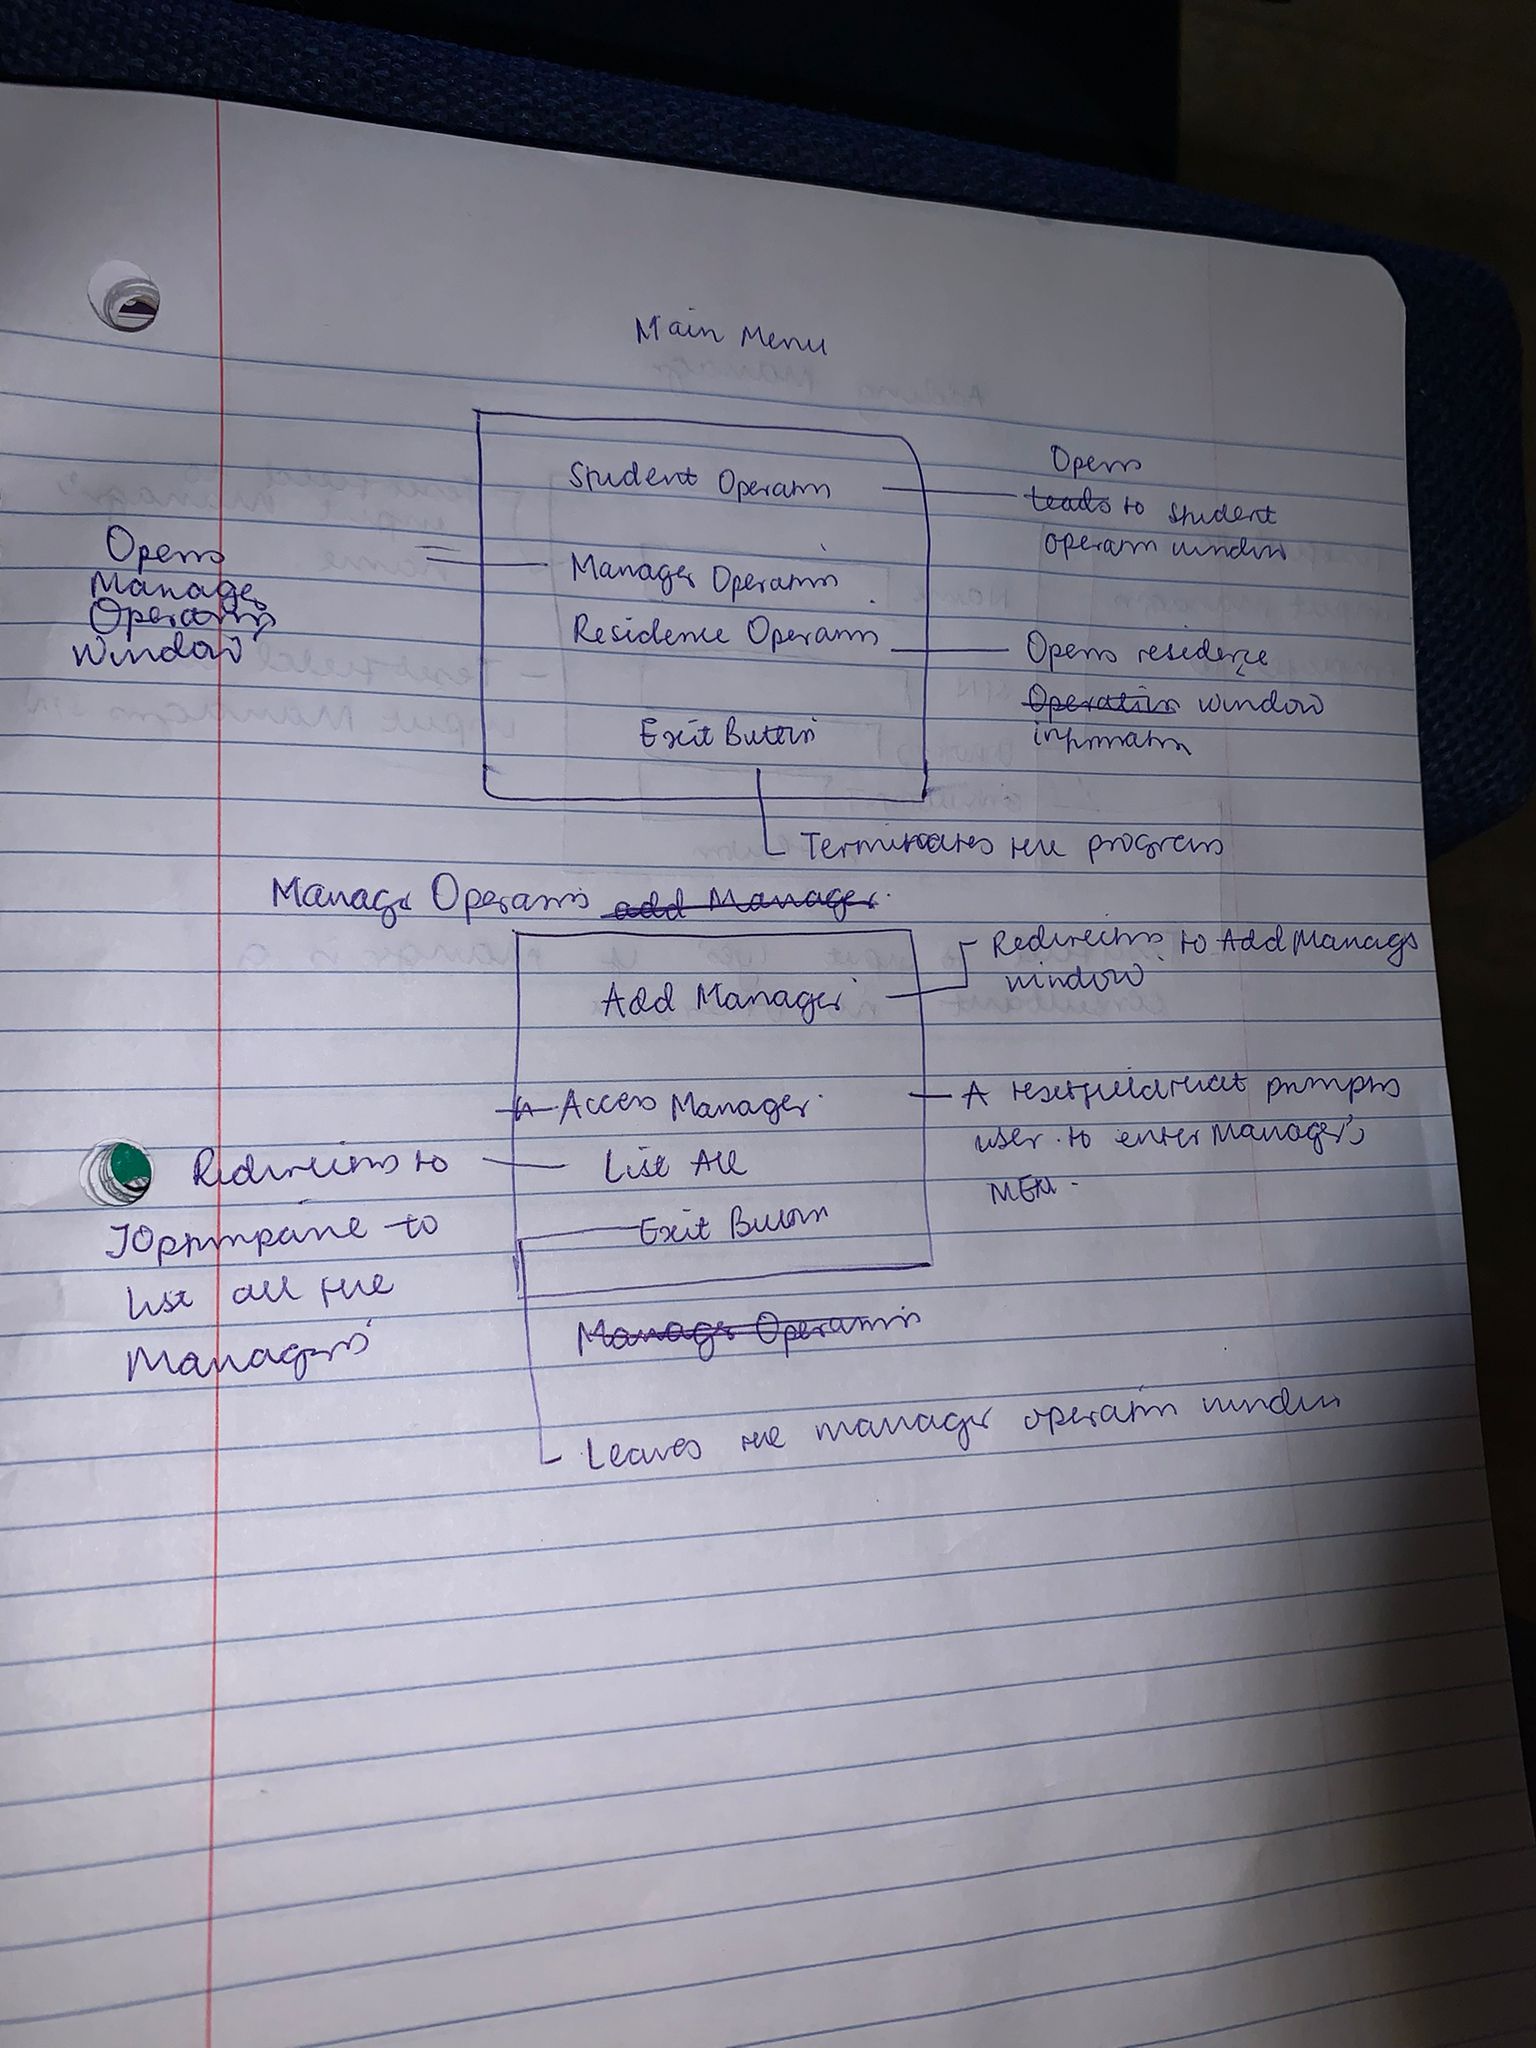 Main Menu
Student Operations
Opens
leads to student
operation window
Opens
Manager
Operations
window
Manager Operations
Residence Operations
Opens residence
Operation window
information
Exit Button
Terminates the program
Manager Operations add Manager
Add Manager
Redirects to Add Manager
window
Access Manager
A textfield that prompts
user to enter Manager's
Redirects to
JOptionpane to
list all the
Managers
List All
Exit Button
Manager Operations
Leaves the manager operation window